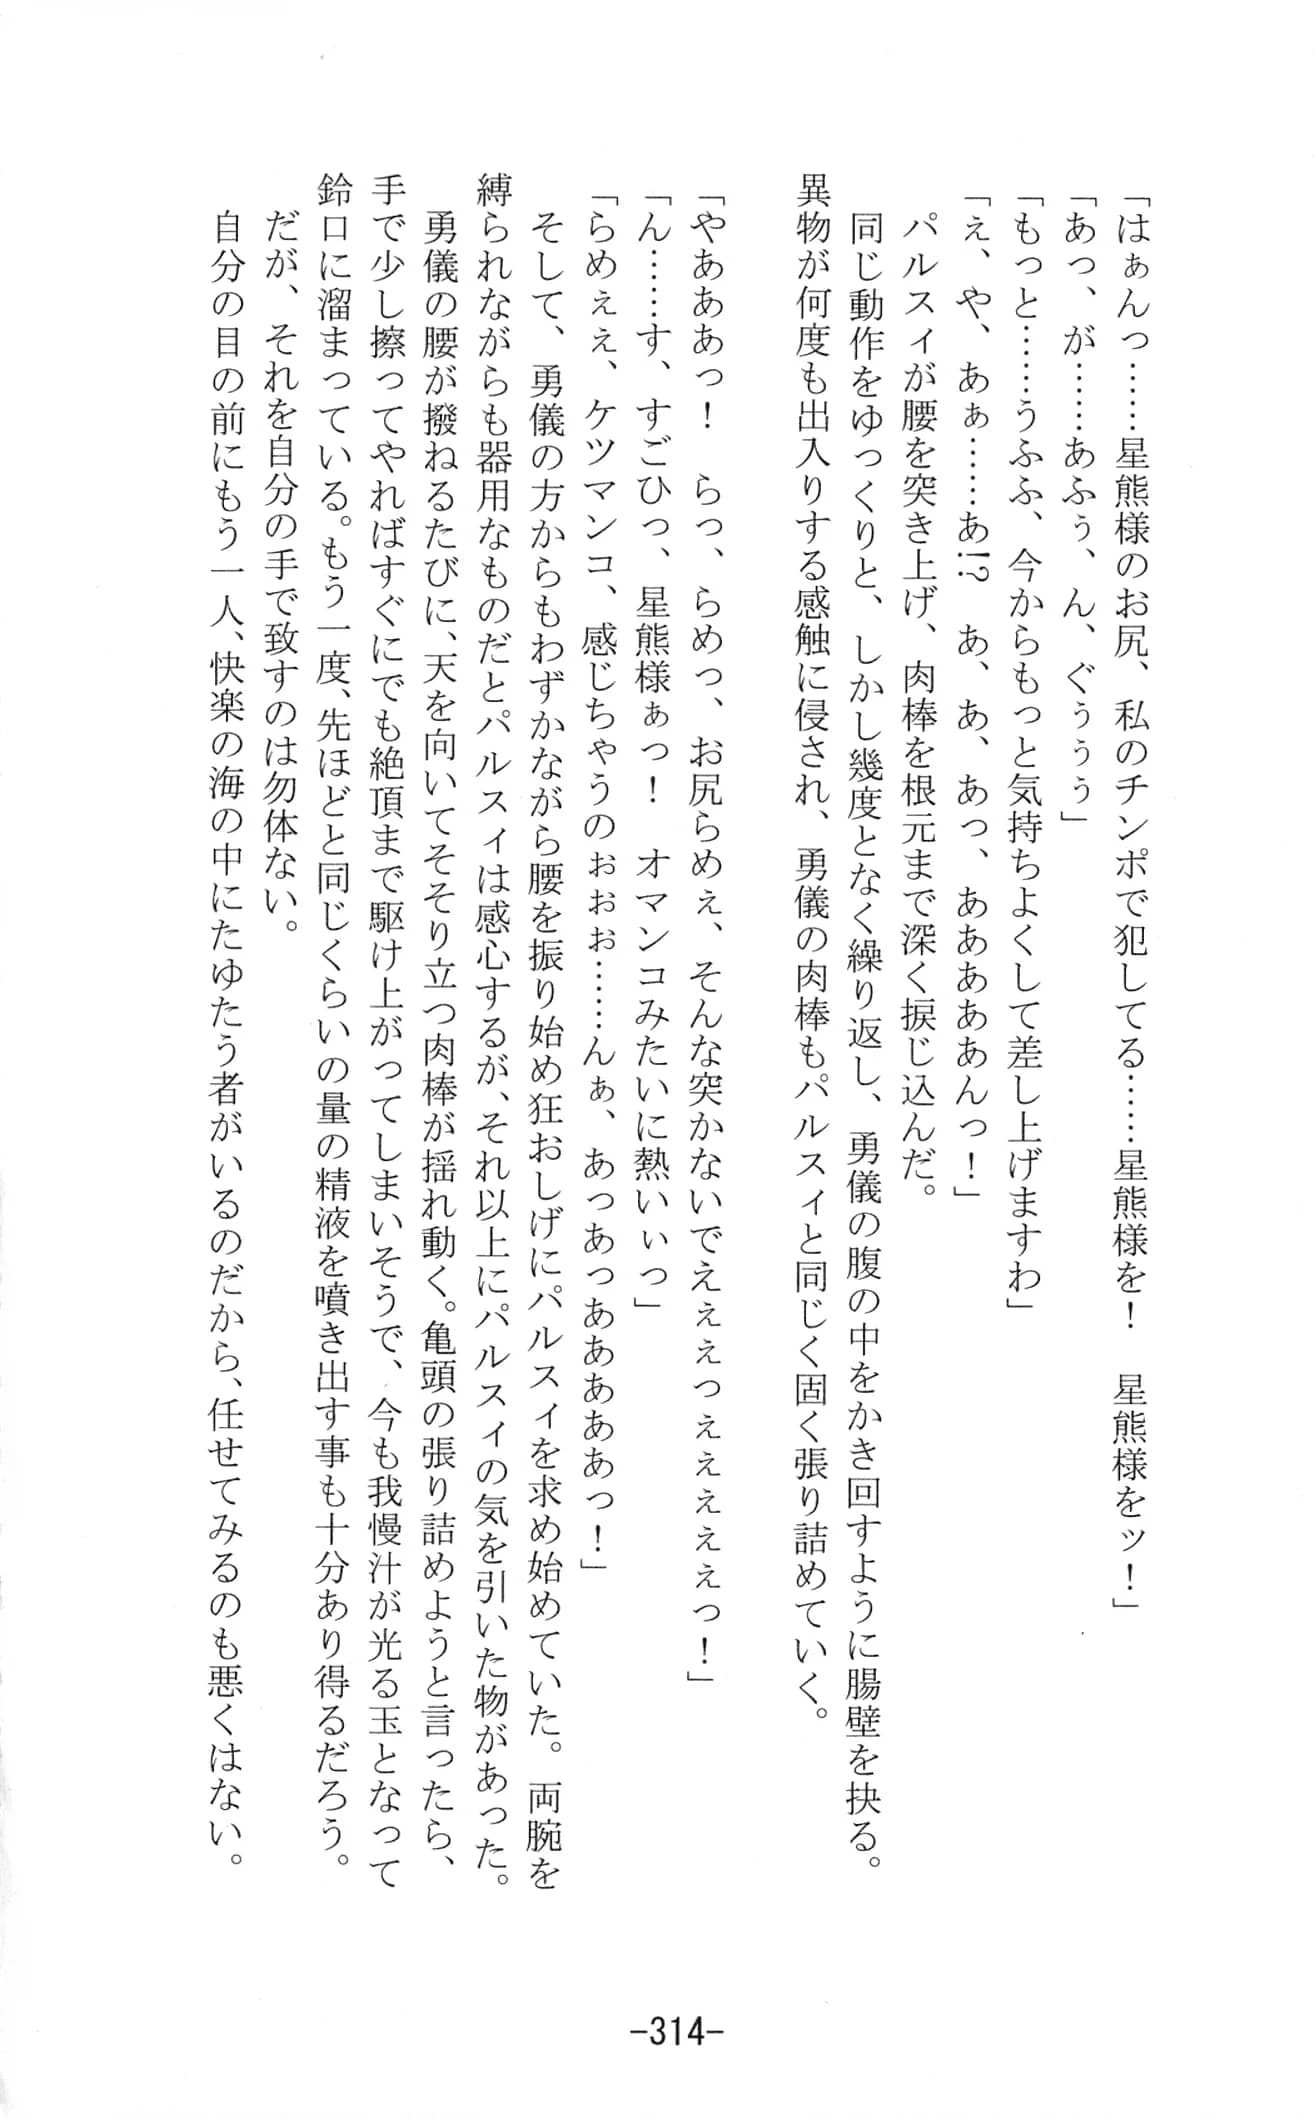 「はぁんっ……星熊様のお尻、私のチンポで犯してる……星熊様を！　星熊様をッ！」
「あっ、が……あふぅ、ん、ぐぅぅぅ」
「もっと……うふふ、今からもっと気持ちよくして差し上げますわ」
「ぇ、や、あぁ……あ!?　あ、あ、あっ、ああああんっ！」
　パルスィが腰を突き上げ、肉棒を根元まで深く捩じ込んだ。
　同じ動作をゆっくりと、しかし幾度となく繰り返し、勇儀の腹の中をかき回すように腸壁を抉る。
異物が何度も出入りする感触に侵され、勇儀の肉棒もパルスィと同じく固く張り詰めていく。
「やあああっ！　らっ、らめっ、お尻らめぇ、そんな突かないでえぇぇっぇぇぇぇぇっ！」
「ん……す、すごひっ、星熊様ぁっ！　オマンコみたいに熱いぃっ」
「らめぇぇ、ケツマンコ、感じちゃうのぉぉぉ……んぁ、あっあっあああああっ！」
　そして、勇儀の方からもわずかながら腰を振り始め狂おしげにパルスィを求め始めていた。両腕を
縛られながらも器用なものだとパルスィは感心するが、それ以上にパルスィの気を引いた物があった。
　勇儀の腰が撥ねるたびに、天を向いてそそり立つ肉棒が揺れ動く。亀頭の張り詰めようと言ったら、
手で少し擦ってやればすぐにでも絶頂まで駆け上がってしまいそうで、今も我慢汁が光る玉となって
鈴口に溜まっている。もう一度、先ほどと同じくらいの量の精液を噴き出す事も十分あり得るだろう。
　だが、それを自分の手で致すのは勿体ない。
　自分の目の前にもう一人、快楽の海の中にたゆたう者がいるのだから、任せてみるのも悪くはない。
-314-